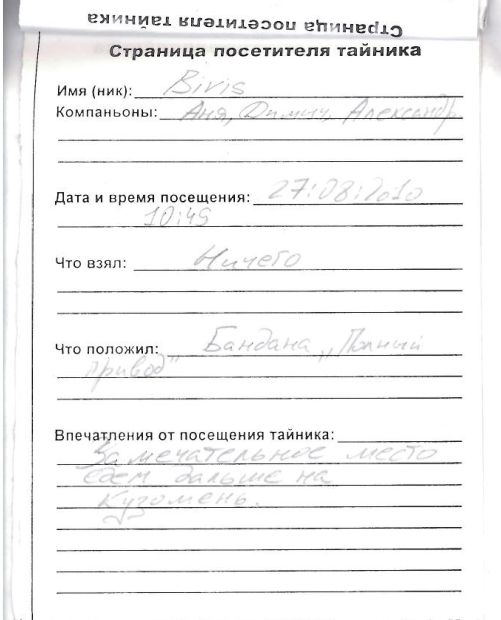 Страница посетителя тайника
Страница посетителя тайника
Имя (ник): Bivis
Компаньоны: Аня, Димыч, Александр
Дата и время посещения: 27:08:2010
10:45
Что взял: Ничего
Что положил: Бандана „Полный
привод"
Впечатления от посещения тайника:
Замечательное место
едем дальше на
Кузомень.